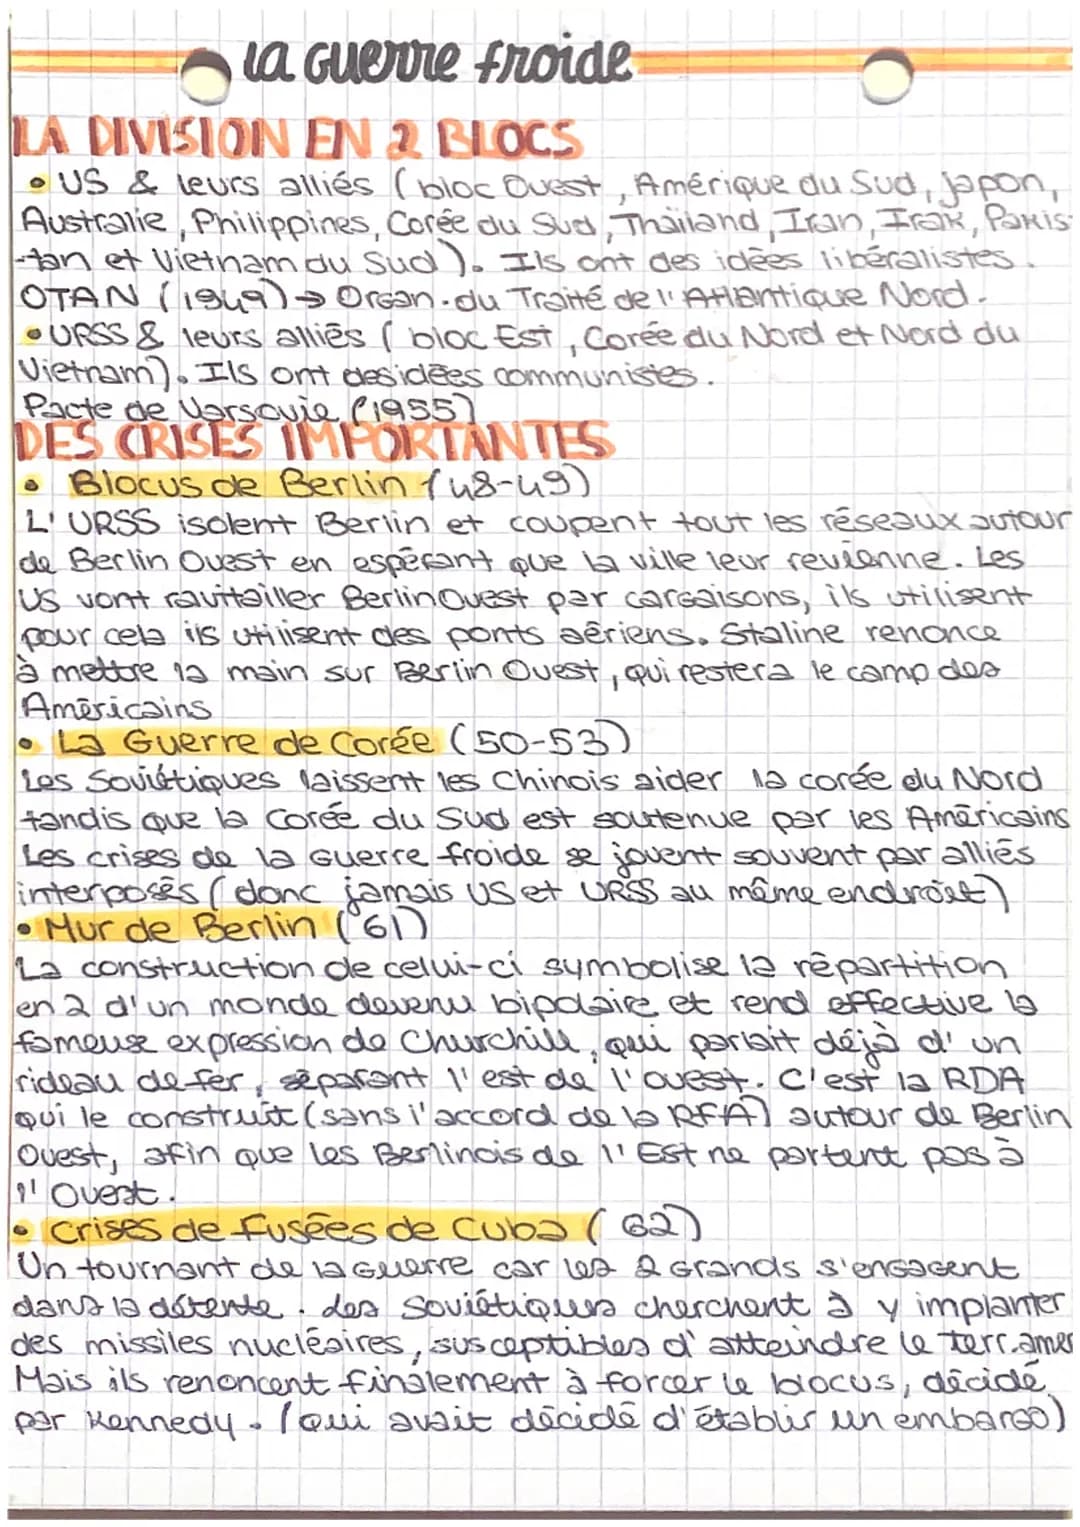 la Guerre froide
LA DIVISION EN 2 BLOCS
• US & leurs alliés (bloc Ouest, Amérique du Sud, Japon,
Australie, Philippines, Corée du Sud, Thaïland, Iran, Irak, Pakis-
-tan et Vietnam du Sud). Ils ont des idées libéralistes.
OTAN (1949) → Organ. du Traité de l'Atlantique Nord.
• URSS & leurs alliés (bloc Est, Corée du Nord et Nord du
Vietnam). Ils ont des idées communistes.
Pacte de Varsovie (1955)
DES CRISES IMPORTANTES
• Blocus de Berlin (48-49)
L'URSS isolent Berlin et coupent tout les réseaux autour
de Berlin Ouest en espérant que la ville leur revienne. Les
US vont ravitailler Berlin Ouest par cargaisons, ils utilisent
pour cela ils utilisent des ponts aériens. Staline renonce
à mettre la main sur Berlin Ouest, qui restera le camp des
Américains
• La Guerre de Corée (50-53)
Les Soviétiques laissent les Chinois aider la corée du Nord
tandis que la Corée du Sud est soutenue par les Américains
Les crises de la Guerre froide se jouent souvent par alliés
interposés (donc jamais US et URSS au même endroit)
• Mur de Berlin (61)
La construction de celui-ci symbolise la répartition
en 2 d'un monde devenu bipolaire et rend effective la
fameuse expression de Churchill, qui parlait déjà d'un
rideau de fer, séparant l'est de l'ouest. C'est la RDA
qui le construit (sans l'accord de la RFA) autour de Berlin
Ouest, afin que les Berlinois de l'Est ne partent pas à
l'Ouest.
• Crises de fusées de Cuba (62)
Un tournant de la Guerre car les 2 Grands s'engagent
dans la détente. Les Soviétiques cherchent à y implanter
des missiles nucléaires, susceptibles d'atteindre le terr.amer
Mais ils renoncent finalement à forcer le blocus, décidé
par Kennedy. (qui avait décidé d'établir un embargo)